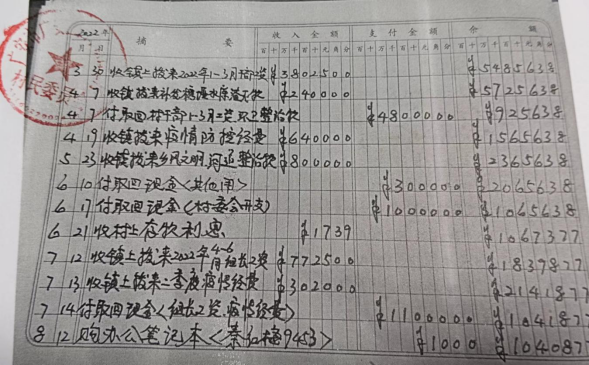 2022年 摘 要 收入金额 支付金额 余 额
月 日 百十万千百十元角分 百十万千百十元角分 百十万千百十元角分
3 30 收镇上拨来2022年1-3月干部工资 ¥3802500 ¥5485638
4 7 收镇拨来 ¥240000 ¥5725638
4 7 付取回村干部1-3月工资 ¥4800000 ¥925638
4 19 收镇拨来疫情防控经费 ¥640000 ¥1565638
5 23 收镇拨来乡风文明,河道整治款 ¥800000 ¥2365638
6 10 付取回现金<其他用> ¥300000 ¥2065638
6 17 付取回现金<村委会开支> ¥1000000 ¥1065638
6 21 收村上存款利息 ¥1739 ¥1067377
7 12 收镇上拨来2022年4-6月组长工资 ¥772500 ¥1839877
7 13 收镇上拨来二季度疫情经费 ¥302000 ¥2141877
7 14 付取回现金<组长工资,疫情经费> ¥1100000 ¥1041877
8 12 购办公笔记本<秦 9453> ¥1000 ¥1040877
村民委员